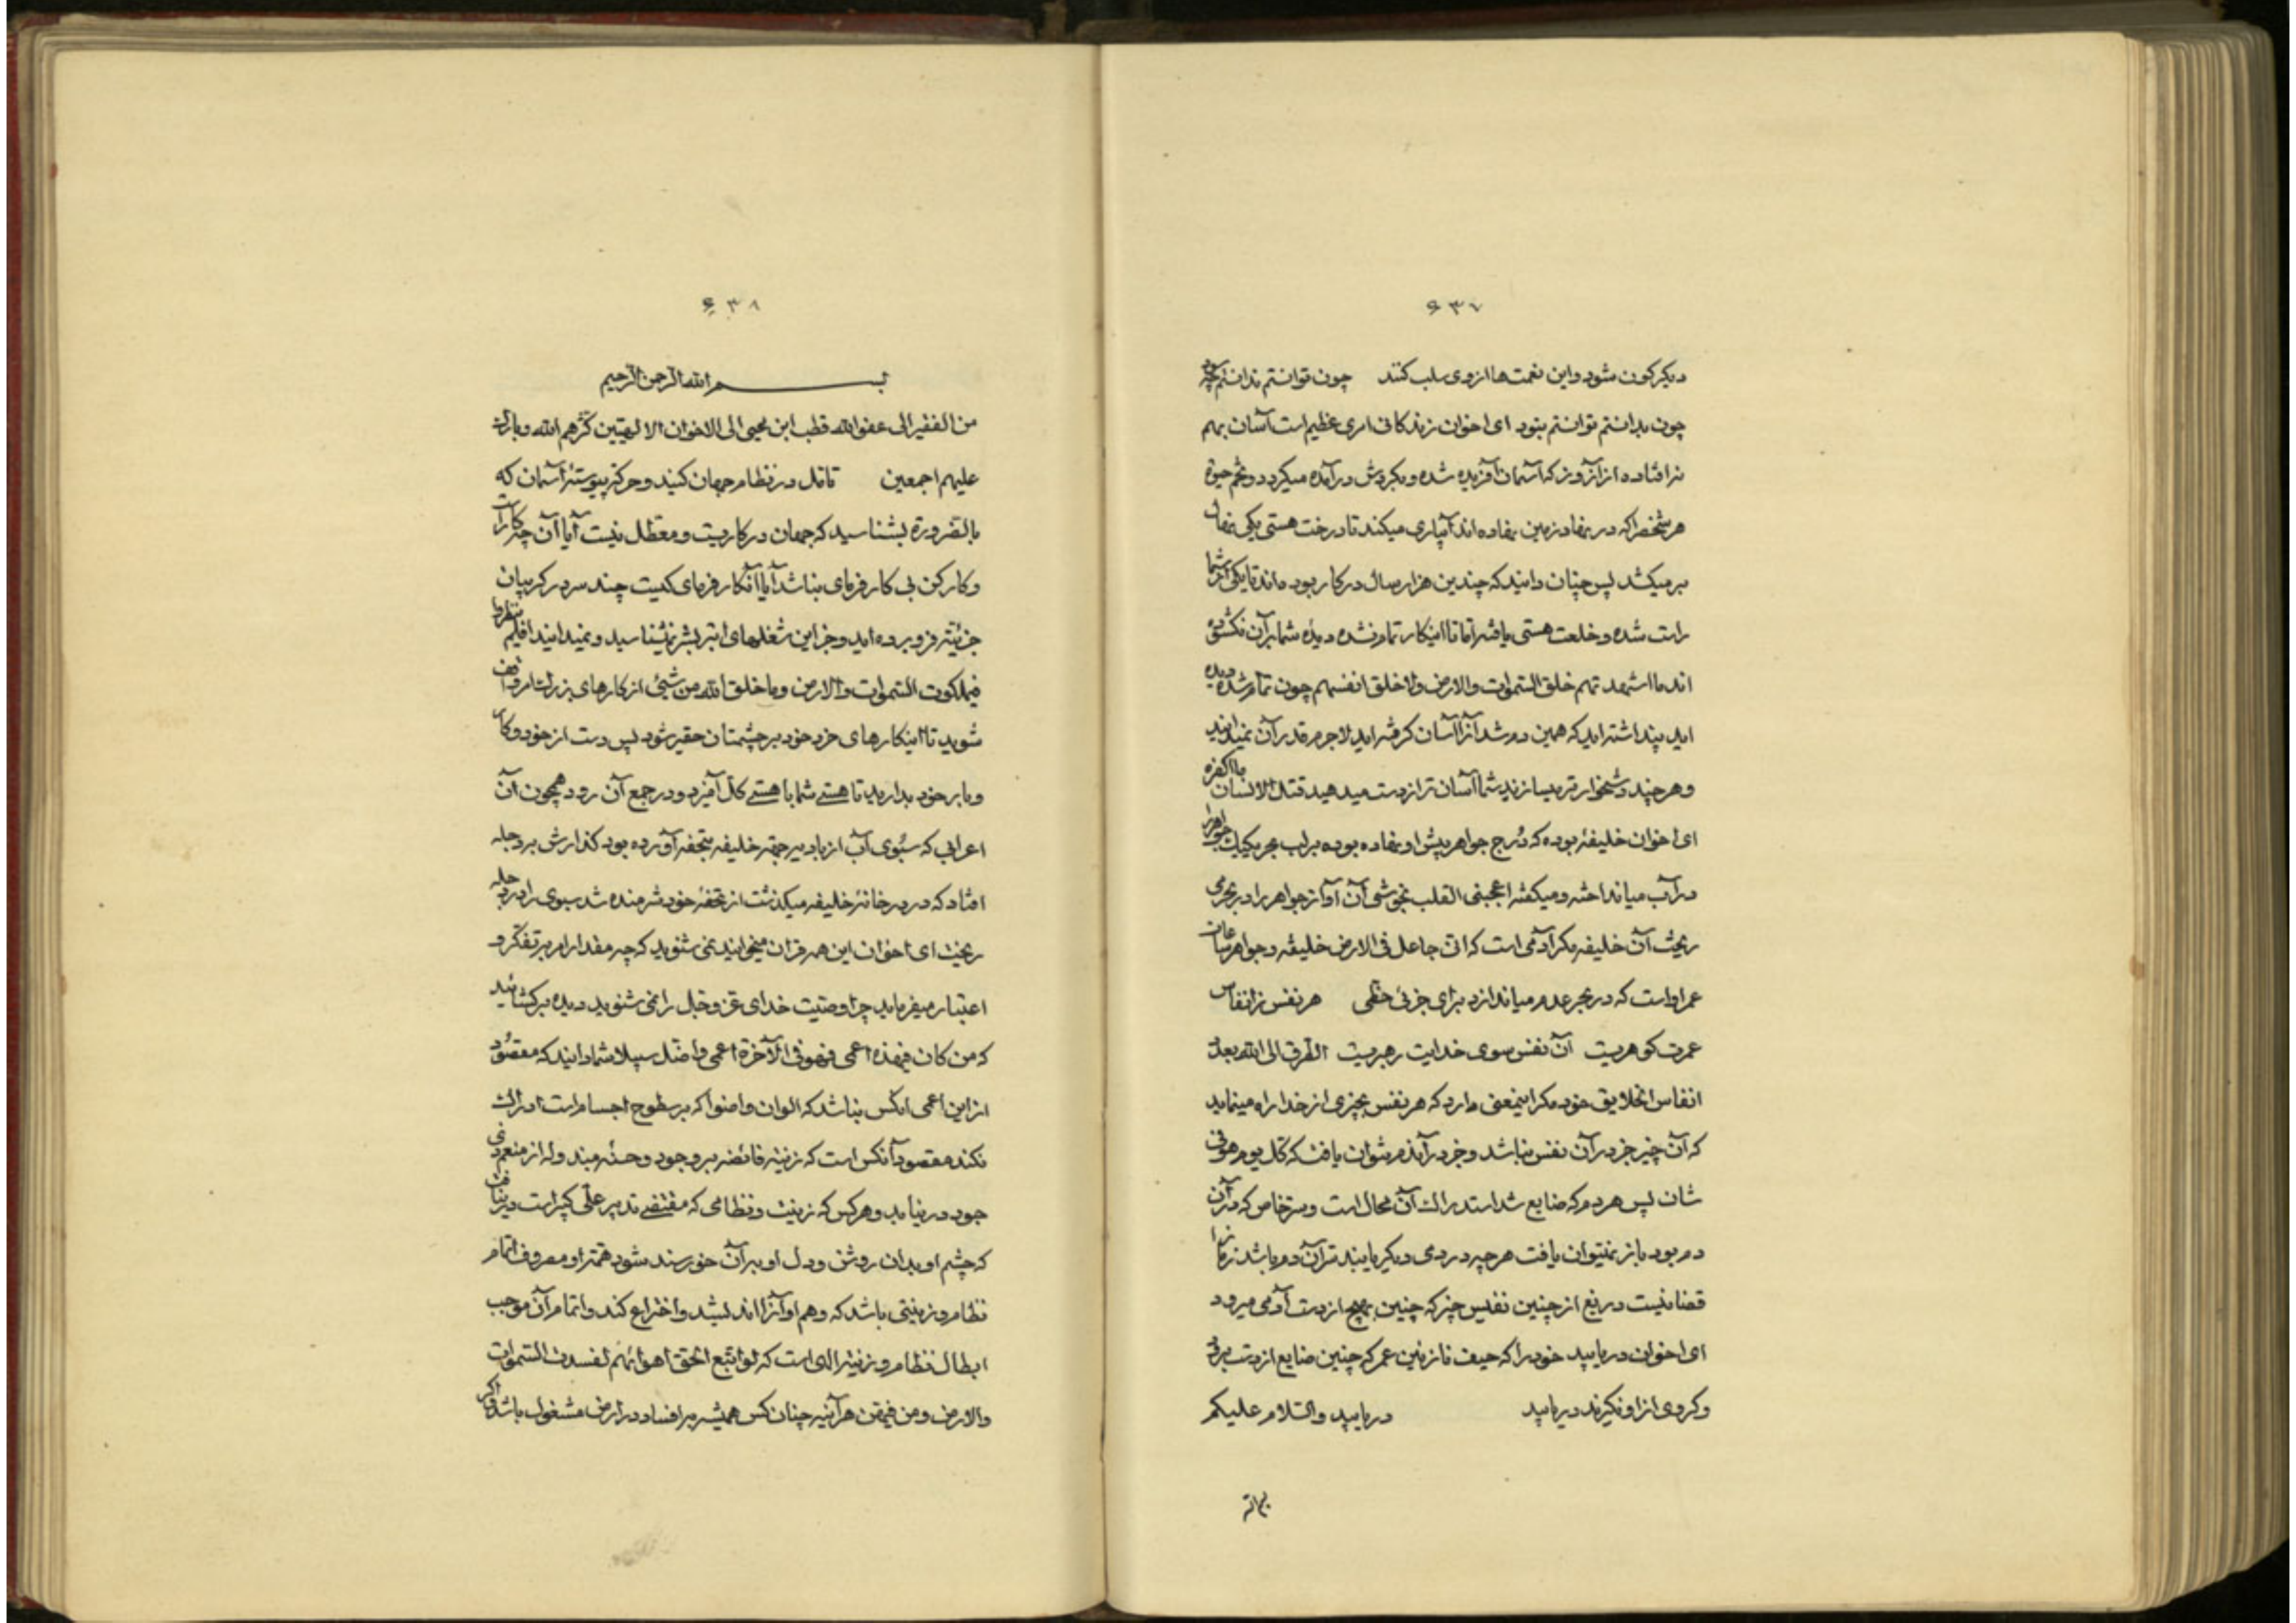 ۶۳۷
دیگرکون شود و این نعمت‌ها از وی سلب کنند چون توانستم ندانستم چه
چون بدانستم توانستم نبود ای اخوان زندکانی امری عظیم است آسان بهم
نرافتاده از آنروز که آسمان آفریده شده و بکردش درآمده میکردد و تخم حیوة
هر شخصرا که در نهاد زمین نهاده اند آبیاری میکند تا درخت هستی یکی
برمیکشد پس چنان دانید که چندین هزار سال در کار بود ماند تا یکی از شما
راست شده و خلعت هستی یافته اما تا اینکار تمام نشده دیده شما بر آن نکشوده
اند ما اشهدتهم خلق السموات والارض ولا خلق انفسهم چون تمام شده دیده
اید پنداشته اید که همین دم شد آنرا آسان کرفته اید لاجرم قدر آن نمیدانید
و هرچند دشخوارتر بسازند شما آسان تر از دست میدهید قتل الانسان ما اکفره
ای اخوان خلیفهٔ بوده که دُرج جواهر پیش او نهاده بوده بر لب بحر یکیک جواهر را
در آب میانداخته و میکفته اعجبنی القلب بخوشی آن آواز جواهر را در بحر می
ریخت آن خلیفه مکر آدمی است که انی جاعل فی الارض خلیفه و جواهر ساعات
عمر اواست که در بحر عدم میاندازد برای جزئی حظی هر نفس زانفاس
عمرت کوهریست آن نفس سوی خدایت رهبریست الطرق الی الله بعدد
انفاس الخلایق خود مکر اینمعنی دارد که هر نفس بچیزی از خدا راه مینماید
که آن چیز جز در آن نفس نباشد و جز در آندم نتوان یافت که کل یوم هو فی
شان پس هر دم که ضایع شد استدراک آن محال است و سر خاص که در آن
دم بود باز نمیتوان یافت هرچه در دمی دیکر یابند ترآن دم باشد نه مرآنرا
قضا نیست دریغ از چنین نفیس چیز که چنین بهیچ از دست آدمی میرود
ای اخوان دریابید خود را که حیف نازنین عمر که چنین ضایع از دست برود
و کروی از او نکیرند دریابید دریابید والسلام علیکم
۶۳۸
بسم الله الرحمن الرحیم
من الفقیر الی عفو الله قطب ابن یحیی الی الاخوان الالهیین کثرهم الله و بارک
علیهم اجمعین تامل در نظام جهان کنید و حرکت پیوستهٔ آسمان که
بالضرورة بشناسید که جهان در کاریست و معطل نیست آیا آن چه کار است
و کارکن بی کارفرمای نباشد آیا آنکارفرمای کیست چند سر در کریبان
جزئیت فرو برده اید و جز این شغلهای ابتر بشر نشناسید و نمیدانید افلم ینظروا
فی ملکوت السموات والارض وما خلق الله من شیئ از کارهای بزرک واقف
شوید تا اینکارهای خرد خود بر چشمتان حقیر شود پس دست از خود و کار
و بار خود بدارید تا هستی شما با هستی کل آمیزد و در جمع آن رود همچون آن
اعرابی که سبوی آب از بادیه جهت خلیفه بتحفه آورده بود کذارش بر دجله
افتاد که در در خانهٔ خلیفه میکذشت از تحفهٔ خود شرمنده شد سبوی را در دجله
ریخت ای اخوان این همه قران میخوانید نمی شنوید که چه مقدار امر بر تفکر و
اعتبار میفرماید چرا وصیت خدای عز و جل را نمی شنوید دیده برکشائید
که من کان فی هذه اعمی فهو فی الآخرة اعمی واضل سبیلا شما دانید که مقصود
از این اعمی انکس نباشد که الوان و اضوا که بر سطوح اجسام است ادراک
نکند مقصود آنکس است که زینت فائضه بر وجود و حسن مبدوله از منعم ذی
جود در نیابد و هرکس که زینت و نظامی که مقتضی تدبیر علی کبیر است در نیافت
که چشم او بدان روشن و دل او بر آن خورسند شود همت او مصروف اتمام
نظام و زینتی باشد که وهم او آنرا اندیشد و اختراع کند و اتمام آن موجب
ابطال نظام و زینت الهی است که لو اتبع الحق اهوائهم لفسدت السموات
والارض ومن فیهن هرآینه چنان کس همیشه بر افساد در ارض مشغول باشد